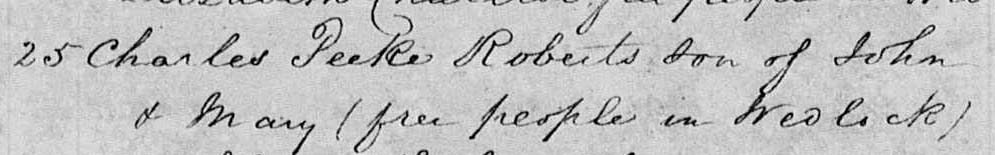 25 Charles Peeke Roberts son of John
& Mary (free people in Wedlock)